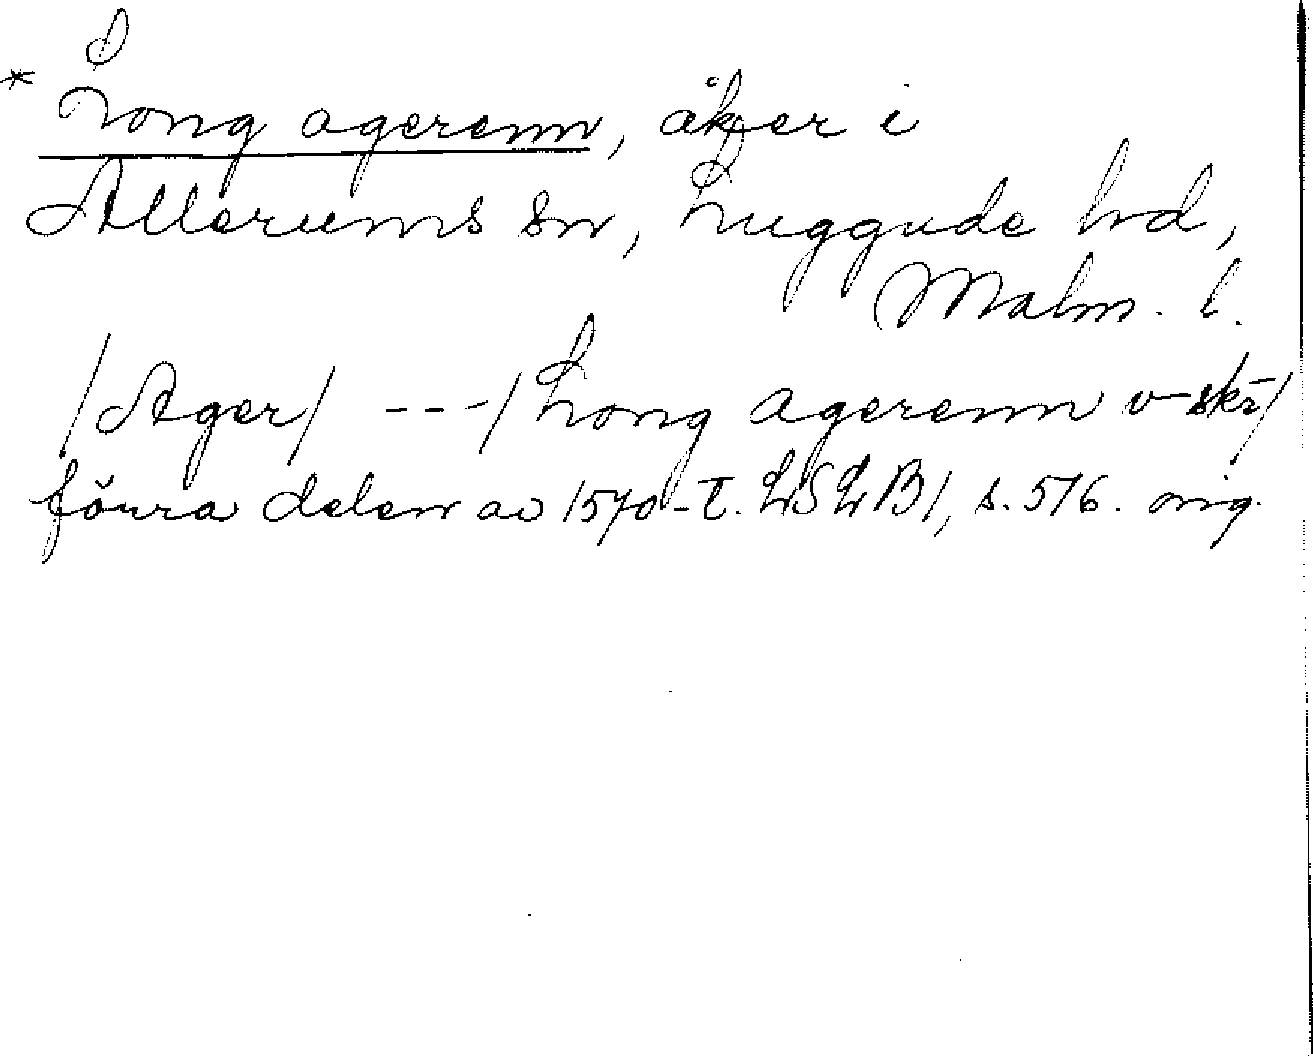 * Long agerenn, åker i
Allerums sn, Luggude hd,
Malm. l.
/Ager/ ---/Long agerenn v-skr/
förra delen av 1570-t. LSLB1, s. 516. orig.